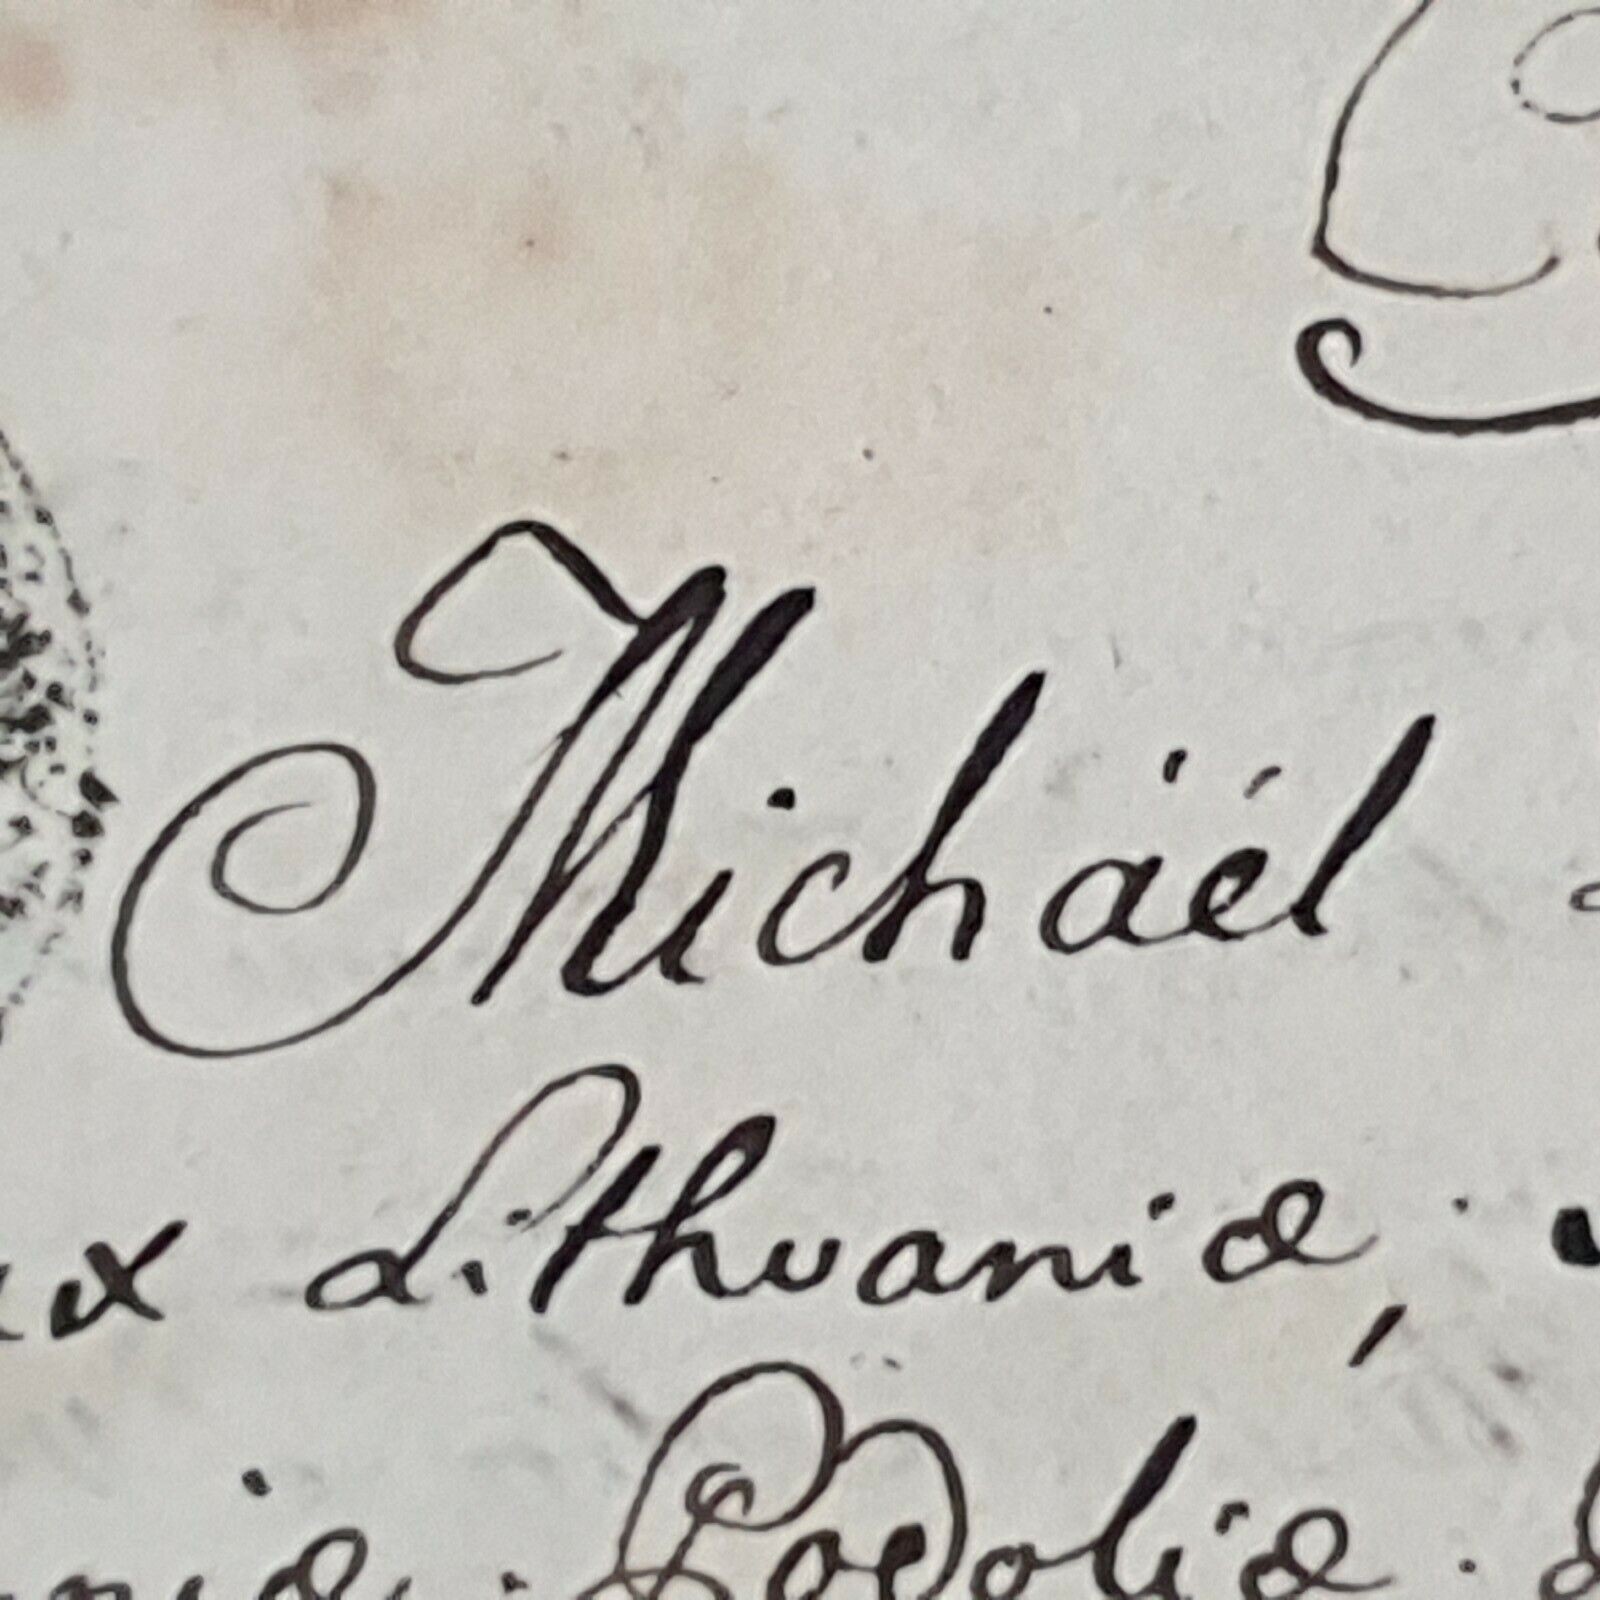 Michaël
ux Lithuaniæ,
niæ, Podoliæ